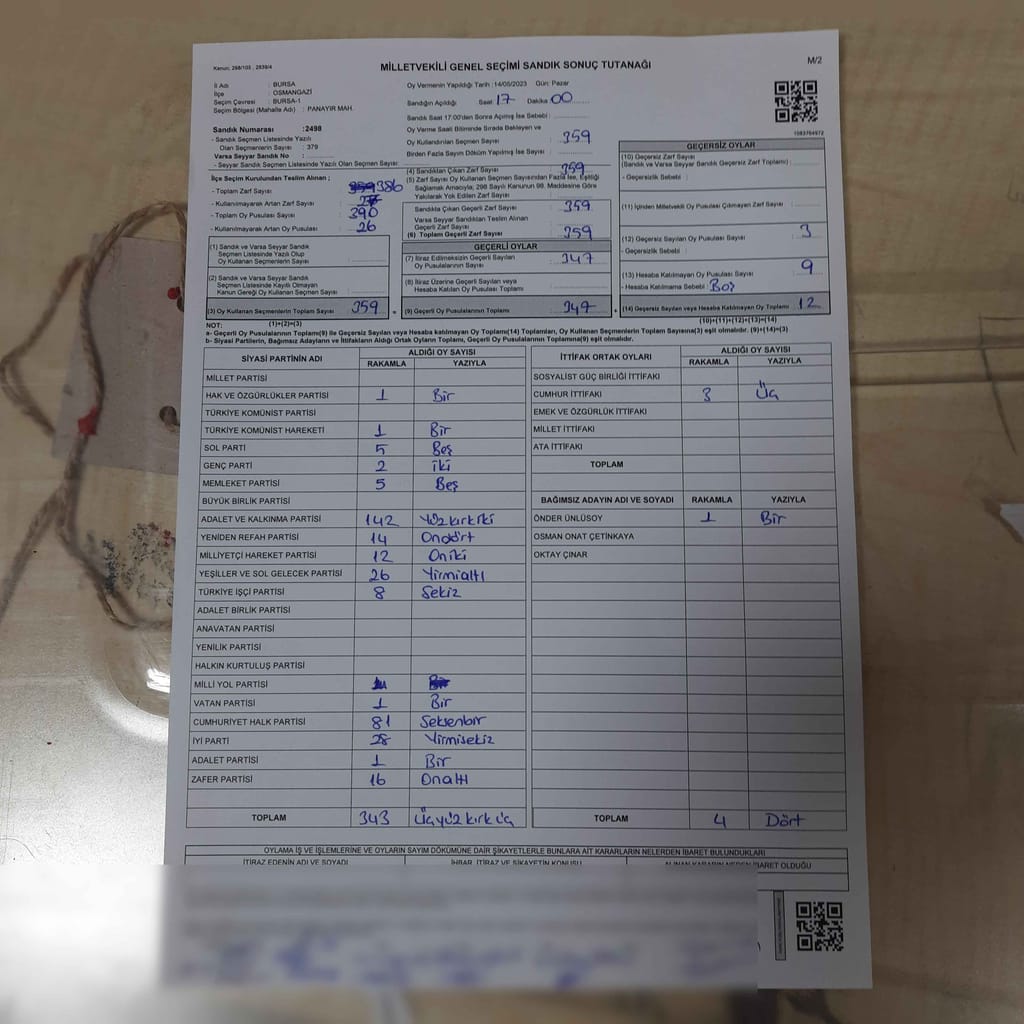 Kanun: 298/105 , 2839/4
MİLLETVEKİLİ GENEL SEÇİMİ SANDIK SONUÇ TUTANAĞI
M/2
İl Adı : BURSA
İlçe : OSMANGAZİ
Seçim Çevresi : BURSA-1
Seçim Bölgesi (Mahalle Adı) : PANAYIR MAH.
Sandık Numarası :2498
- Sandık Seçmen Listesinde Yazılı
Olan Seçmenlerin Sayısı : 379
Varsa Seyyar Sandık No :
- Seyyar Sandık Seçmen Listesinde Yazılı Olan Seçmen Sayısı:
İlçe Seçim Kurulundan Teslim Alınan ;
- Toplam Zarf Sayısı : 386
- Kullanılmayarak Artan Zarf Sayısı :
- Toplam Oy Pusulası Sayısı : 390
- Kullanılmayarak Artan Oy Pusulası : 26
(1) Sandık ve Varsa Seyyar Sandık
Seçmen Listesinde Yazılı Olup
Oy Kullanan Seçmenlerin Sayısı :
(2) Sandık ve Varsa Seyyar Sandık
Seçmen Listesinde Kayıtlı Olmayan
Kanun Gereği Oy Kullanan Seçmen Sayısı :
(3) Oy Kullanan Seçmenlerin Toplam Sayısı : 359
(1)+(2)=(3)
Oy Vermenin Yapıldığı Tarih :14/05/2023 Gün: Pazar
Sandığın Açıldığı Saat 17 Dakika 00
Sandık Saat 17.00'den Sonra Açılmış İse Sebebi :
Oy Verme Saati Bitiminde Sırada Bekleyen ve
Oy Kullandırılan Seçmen Sayısı : 359
Birden Fazla Sayım Döküm Yapılmış İse Sayısı :
(4) Sandıktan Çıkan Zarf Sayısı : 359
(5) Zarf Sayısı Oy Kullanan Seçmen Sayısından Fazla İse, Eşitliği
Sağlamak Amacıyla, 298 Sayılı Kanunun 98. Maddesine Göre
Yakılarak Yok Edilen Zarf Sayısı :
Sandıkta Çıkan Geçerli Zarf Sayısı : 359
Varsa Seyyar Sandıktan Teslim Alınan
Geçerli Zarf Sayısı :
(6) Toplam Geçerli Zarf Sayısı : 359
GEÇERLİ OYLAR
(7) İtiraz Edilmeksizin Geçerli Sayılan
Oy Pusulalarının Sayısı : 347
(8) İtiraz Üzerine Geçerli Sayılan veya
Hesaba Katılan Oy Pusulası Toplamı :
(9) Geçerli Oy Pusulalarının Toplamı : 347
1083764972
GEÇERSİZ OYLAR
(10) Geçersiz Zarf Sayısı
(Sandık ve Varsa Seyyar Sandık Geçersiz Zarf Toplamı) :
- Geçersizlik Sebebi :
(11) İçinden Milletvekili Oy Pusulası Çıkmayan Zarf Sayısı :
(12) Geçersiz Sayılan Oy Pusulası Sayısı : 3
- Geçersizlik Sebebi :
(13) Hesaba Katılmayan Oy Pusulası Sayısı : 9
- Hesaba Katılmama Sebebi : Boş
(14) Geçersiz Sayılan veya Hesaba Katılmayan Oy Toplamı : 12
(10)+(11)+(12)+(13)=(14)
NOT:
a- Geçerli Oy Pusulalarının Toplamı(9) ile Geçersiz Sayılan veya Hesaba katılmayan Oy Toplamı(14) Toplamları, Oy Kullanan Seçmenlerin Toplam Sayısına(3) eşit olmalıdır. (9)+(14)=(3)
b- Siyasi Partilerin, Bağımsız Adayların ve İttifakların Aldığı Ortak Oyların Toplamı, Geçerli Oy Pusulalarının Toplamına(9) eşit olmalıdır.
SİYASİ PARTİNİN ADI ALDIĞI OY SAYISI
RAKAMLA YAZIYLA
MİLLET PARTİSİ
HAK VE ÖZGÜRLÜKLER PARTİSİ 1 Bir
TÜRKİYE KOMÜNİST PARTİSİ
TÜRKİYE KOMÜNİST HAREKETİ 1 Bir
SOL PARTİ 5 Beş
GENÇ PARTİ 2 iki
MEMLEKET PARTİSİ 5 Beş
BÜYÜK BİRLİK PARTİSİ
ADALET VE KALKINMA PARTİSİ 142 Yüzkırkiki
YENİDEN REFAH PARTİSİ 14 Ondört
MİLLİYETÇİ HAREKET PARTİSİ 12 Oniki
YEŞİLLER VE SOL GELECEK PARTİSİ 26 Yirmialtı
TÜRKİYE İŞÇİ PARTİSİ 8 Sekiz
ADALET BİRLİK PARTİSİ
ANAVATAN PARTİSİ
YENİLİK PARTİSİ
HALKIN KURTULUŞ PARTİSİ
MİLLİ YOL PARTİSİ
VATAN PARTİSİ 1 Bir
CUMHURİYET HALK PARTİSİ 81 Seksenbir
İYİ PARTİ 28 Yirmisekiz
ADALET PARTİSİ 1 Bir
ZAFER PARTİSİ 16 Onaltı
TOPLAM 343 Üçyüzkırküç
İTTİFAK ORTAK OYLARI ALDIĞI OY SAYISI
RAKAMLA YAZIYLA
SOSYALİST GÜÇ BİRLİĞİ İTTİFAKI
CUMHUR İTTİFAKI 3 Üç
EMEK VE ÖZGÜRLÜK İTTİFAKI
MİLLET İTTİFAKI
ATA İTTİFAKI
TOPLAM
BAĞIMSIZ ADAYIN ADI VE SOYADI RAKAMLA YAZIYLA
ÖNDER ÜNLÜSOY 1 Bir
OSMAN ONAT ÇETİNKAYA
OKTAY ÇINAR
TOPLAM 4 Dört
OYLAMA İŞ VE İŞLEMLERİNE VE OYLARIN SAYIM DÖKÜMÜNE DAİR ŞİKAYETLERLE BUNLARA AİT KARARLARIN NELERDEN İBARET BULUNDUKLARI
İTİRAZ EDENİN ADI VE SOYADI İHBAR, İTİRAZ VE ŞİKAYETİN KONUSU ALINAN KARARIN NEDEN İBARET OLDUĞU